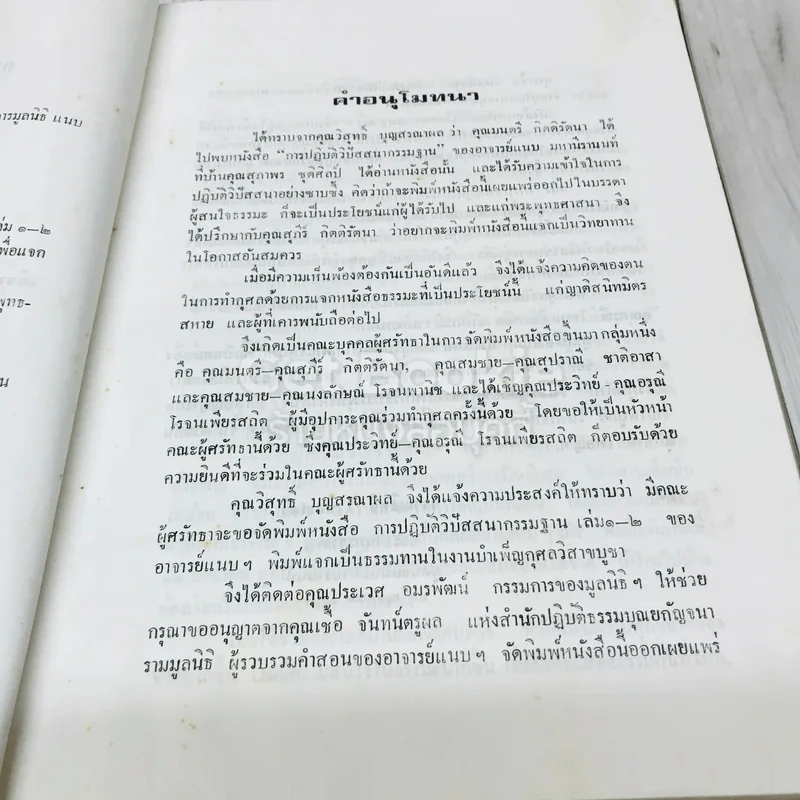 ารมูลนิธิ แนบ
ล่ม ๑—๒
พื่อแจก
พุทธ-
คำอนุโมทนา
ได้ทราบจากคุณวิสุทธิ์ บุญสรณาผล ว่า คุณมนตรี กิตติรัตนา ได้
ไปพบหนังสือ “การปฏิบัติวิปัสสนากรรมฐาน” ของอาจารย์แนบ มหานีรานนท์
ที่บ้านคุณสุภาพร ชุติศิลป์ ได้อ่านหนังสือนั้น และได้รับความเข้าใจในการ
ปฏิบัติวิปัสสนาอย่างซาบซึ้ง คิดว่าถ้าจะพิมพ์หนังสือนี้เผยแพร่ออกไปในบรรดา
ผู้สนใจธรรมะ ก็จะเป็นประโยชน์แก่ผู้ได้รับไป และแก่พระพุทธศาสนา จึง
ได้ปรึกษากับคุณสุภีร์ กิตติรัตนา ว่าอยากจะพิมพ์หนังสือนี้แจกเป็นวิทยาทาน
ในโอกาสอันสมควร
เมื่อมีความเห็นพ้องต้องกันเป็นอันดีแล้ว จึงได้แจ้งความคิดของตน
ในการทำกุศลด้วยการแจกหนังสือธรรมะที่เป็นประโยชน์นี้ แก่ญาติสนิทมิตร
สหาย และผู้ที่เคารพนับถือต่อไป
จึงเกิดเป็นคณะบุคคลผู้ศรัทธาในการ จัดพิมพ์หนังสือขึ้นมา กลุ่มหนึ่ง
คือ คุณมนตรี—คุณสุภีร์ กิตติรัตนา, คุณสมชาย—คุณสุปราณี ชาติอาสา
และคุณสมชาย—คุณนงลักษณ์ โรจนพานิช และได้เชิญคุณประวิทย์ - คุณอรุณี
โรจนเพียรสถิต ผู้มีอุปการะคุณร่วมทำกุศลครั้งนี้ด้วย โดยขอให้เป็นหัวหน้า
คณะผู้ศรัทธานี้ด้วย ซึ่งคุณประวิทย์—คุณอรุณี โรจนเพียรสถิต ก็ตอบรับด้วย
ความยินดีที่จะร่วมในคณะผู้ศรัทธานี้ด้วย
คุณวิสุทธิ์ บุญสรณาผล จึงได้แจ้งความประสงค์ให้ทราบว่า มีคณะ
ผู้ศรัทธาจะขอจัดพิมพ์หนังสือ การปฏิบัติวิปัสสนากรรมฐาน เล่ม๑—๒ ของ
อาจารย์แนบ ฯ พิมพ์แจกเป็นธรรมทานในงานบำเพ็ญกุศลวิสาขบูชา
จึงได้ติดต่อคุณประเวศ อมรพัฒน์ กรรมการของมูลนิธิ ฯ ให้ช่วย
กรุณาขออนุญาตจากคุณเชื้อ จันทน์ตรูผล แห่งสำนักปฏิบัติธรรมบุณยกัญจนา
รามมูลนิธิ ผู้รวบรวมคำสอนของอาจารย์แนบ ฯ จัดพิมพ์หนังสือนี้ออกเผยแพร่